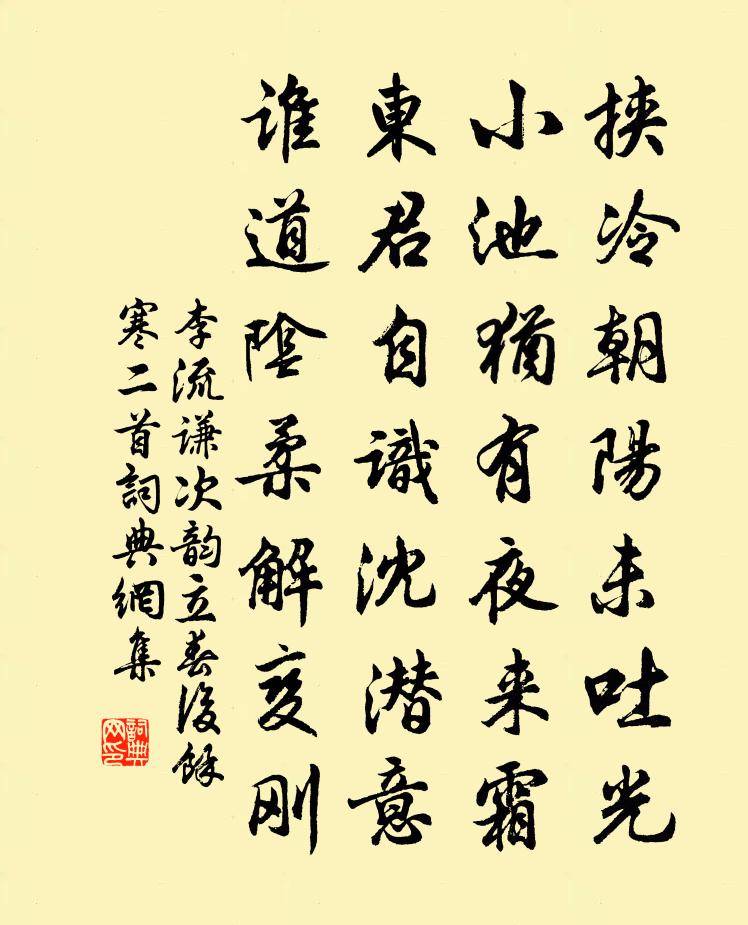 挾冷朝陽未吐光
小池猶有夜来霜
東君自識沈潜意
誰道陰柔解变刚
李流谦次韵立春後餘
寒二首詞典網集
詞典網印